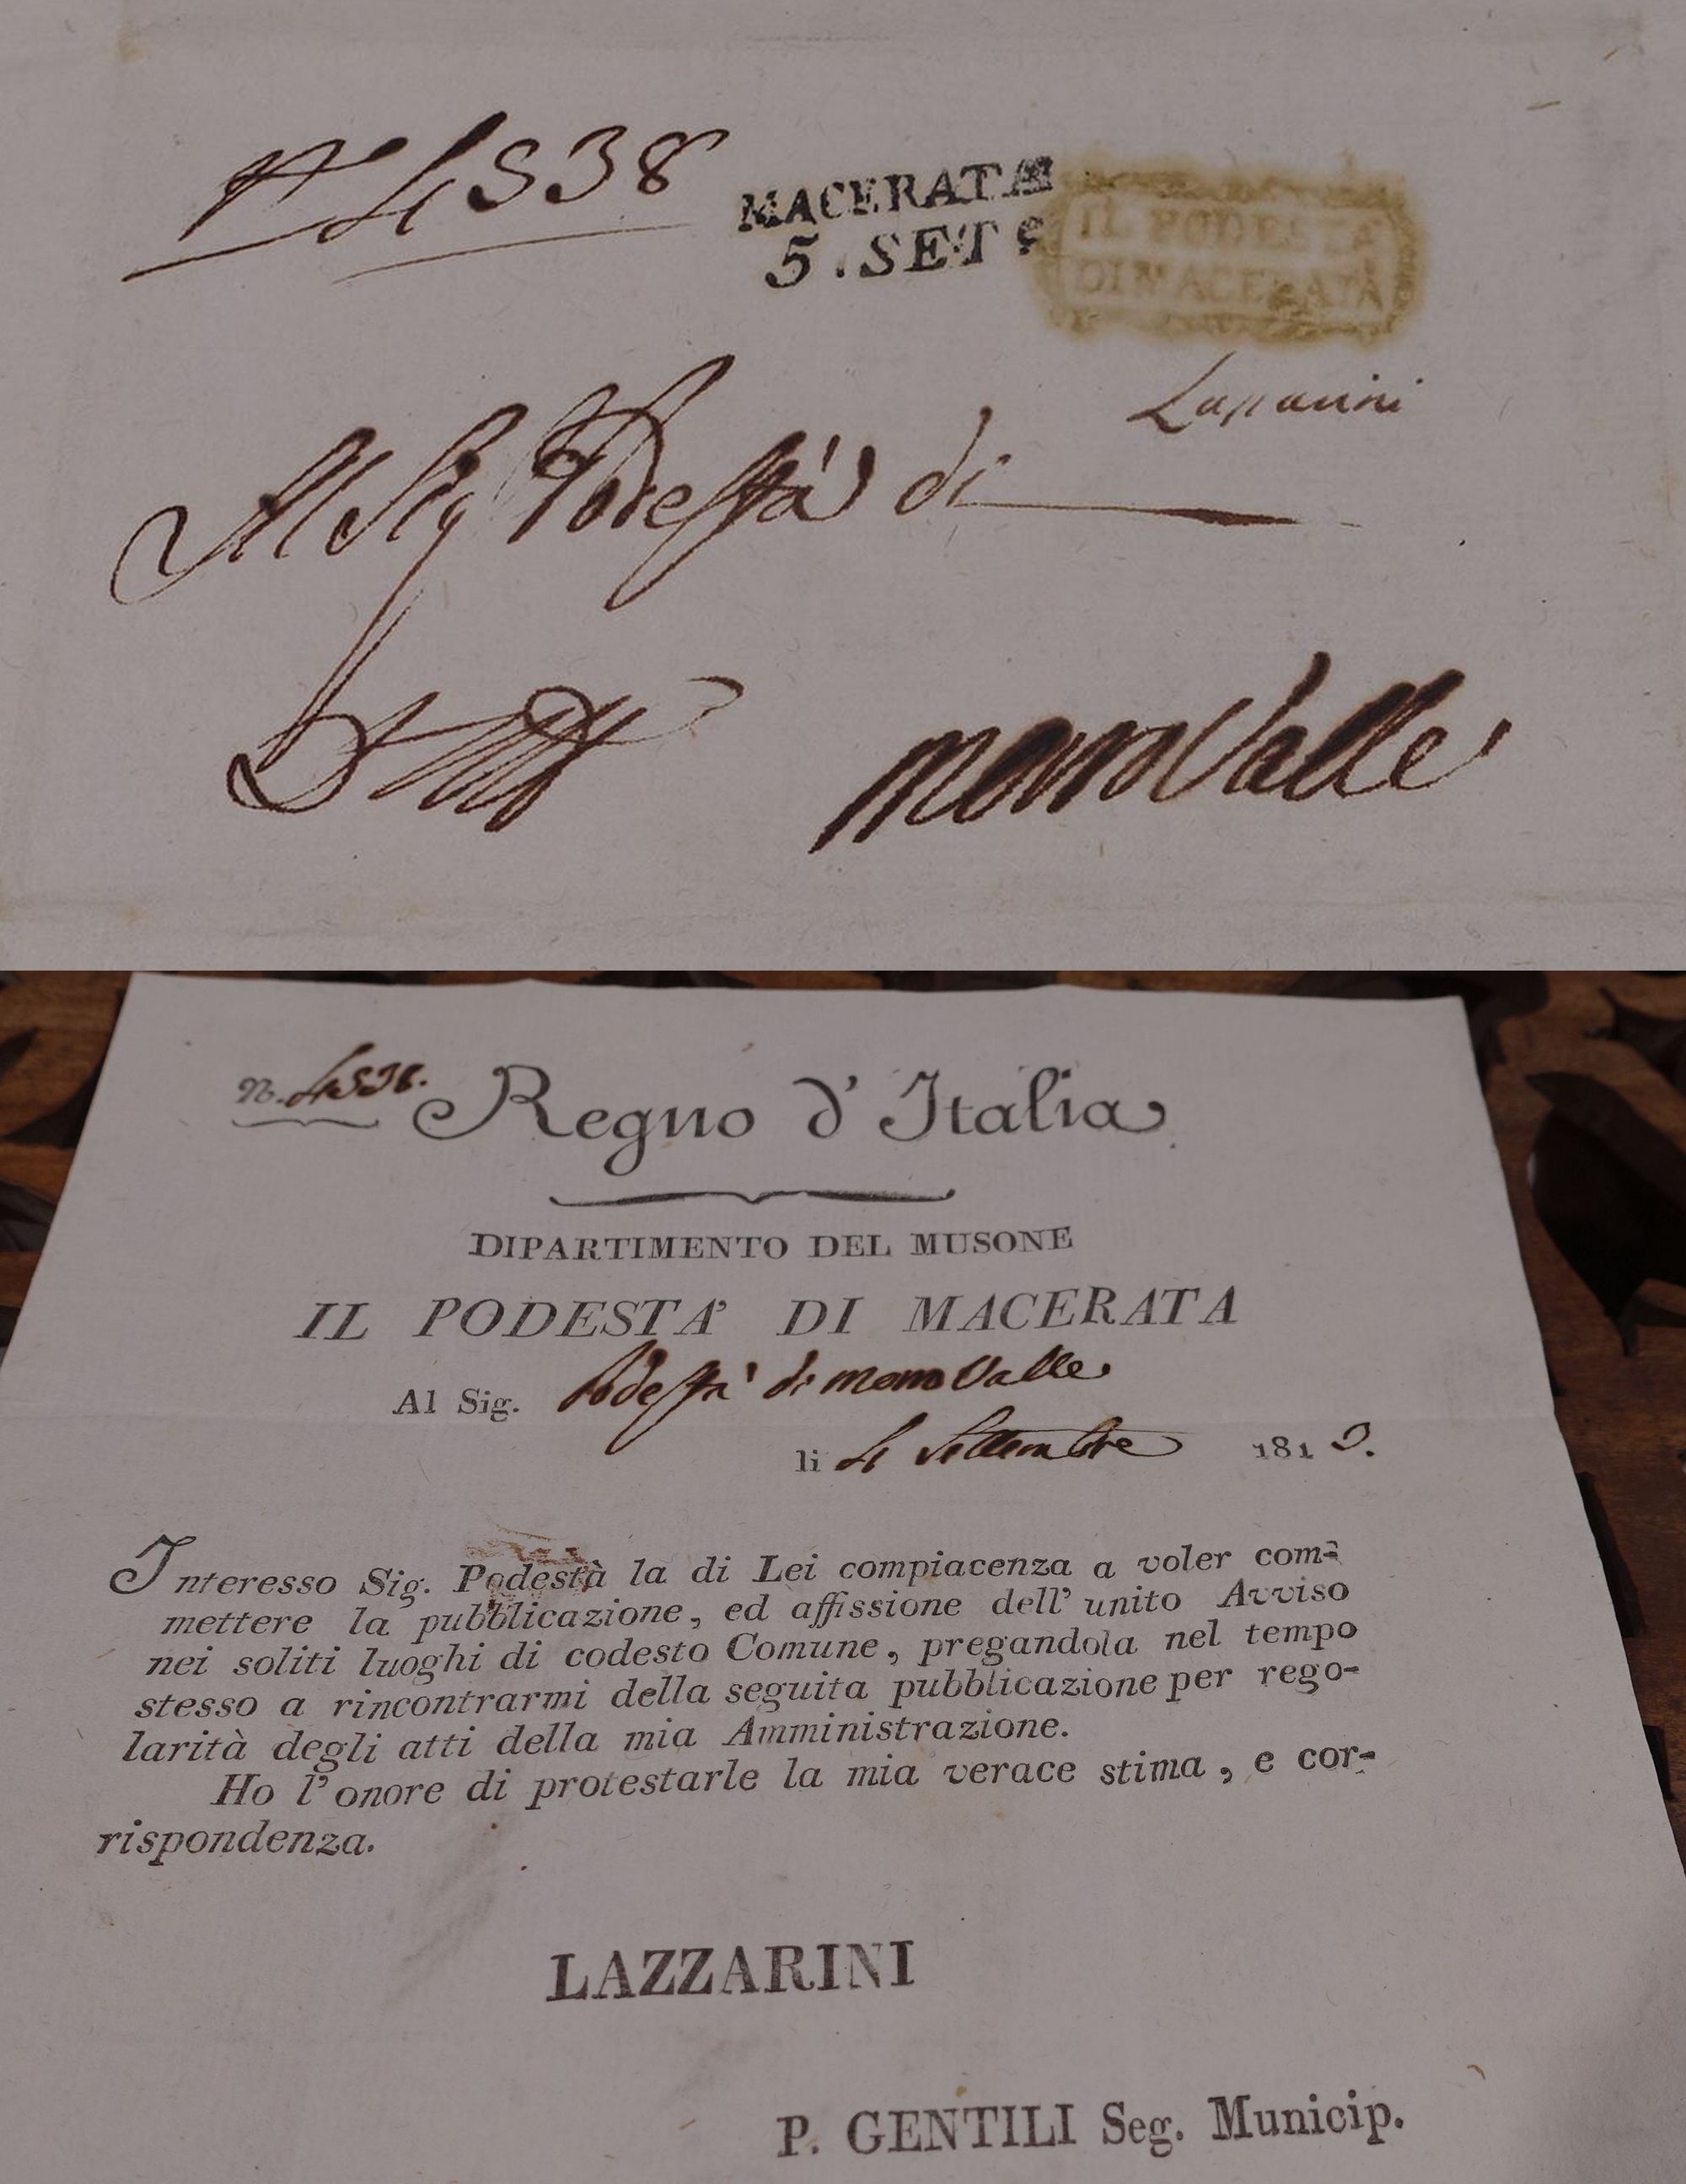 N.° 4538
MACERATA
5. SETE
IL PODESTÀ
DI MACERATA
Lazzarini
Al Sig Podestà di
MonteValle
N. 4538.
Regno d' Italia
DIPARTIMENTO DEL MUSONE
IL PODESTA' DI MACERATA
Al Sig. Podestà di
li 4 Settembre 181
Interesso Sig. Podestà la di Lei compiacenza a voler com-
mettere la pubblicazione, ed affissione dell' unito Avviso
nei soliti luoghi di codesto Comune, pregandola nel tempo
stesso a rincontrarmi della seguita pubblicazione per rego-
larità degli atti della mia Amministrazione.
Ho l' onore di protestarle la mia verace stima, e cor-
rispondenza.
LAZZARINI
P. GENTILI Seg. Municip.